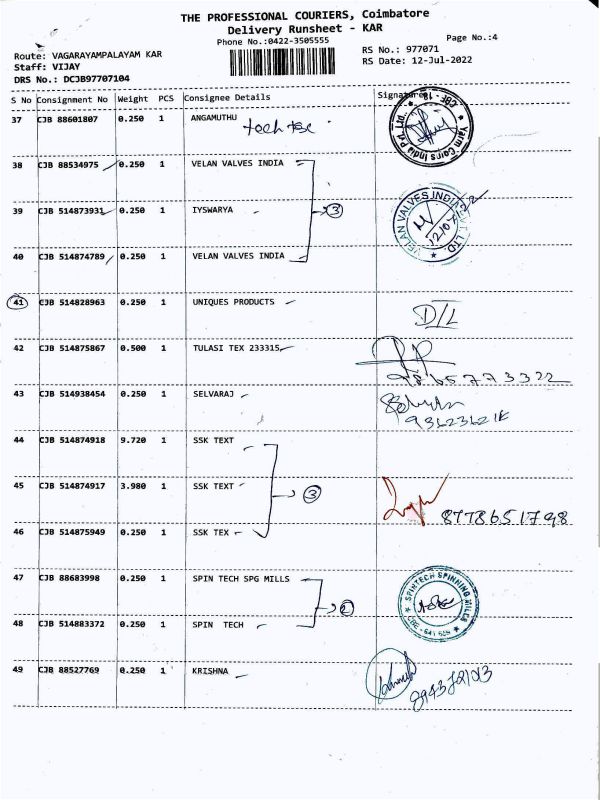 THE PROFESSIONAL COURIERS, Coimbatore
Delivery Runsheet - KAR
Phone No.:0422-3505555
Page No.:4
Route: VAGARAYAMPALAYAM KAR
RS No.: 977071
Staff: VIJAY
RS Date: 12-Jul-2022
DRS No.: DCJB97707104
S No Consignment No Weight PCS Consignee Details Signature
37 CJB 88601807 0.250 1 ANGAMUTHU
Yarn Cairs India Pvt. Ltd. CBE - 18
38 CJB 88534975 0.250 1 VELAN VALVES INDIA
39 CJB 514873931 0.250 1 IYSWARYA
3
VELAN VALVES INDIA PVT. LTD.
12/07/22
40 CJB 514874789 0.250 1 VELAN VALVES INDIA
41 CJB 514828963 0.250 1 UNIQUES PRODUCTS
D/L
42 CJB 514875867 0.500 1 TULASI TEX 233315
9865773322
43 CJB 514938454 0.250 1 SELVARAJ
44 CJB 514874918 9.720 1 SSK TEXT
45 CJB 514874917 3.980 1 SSK TEXT
3
8778651798
46 CJB 514875949 0.250 1 SSK TEX
47 CJB 88683998 0.250 1 SPIN TECH SPG MILLS
2
SPINTECH SPINNING MILLS
48 CJB 514883372 0.250 1 SPIN TECH
49 CJB 88527769 0.250 1 KRISHNA